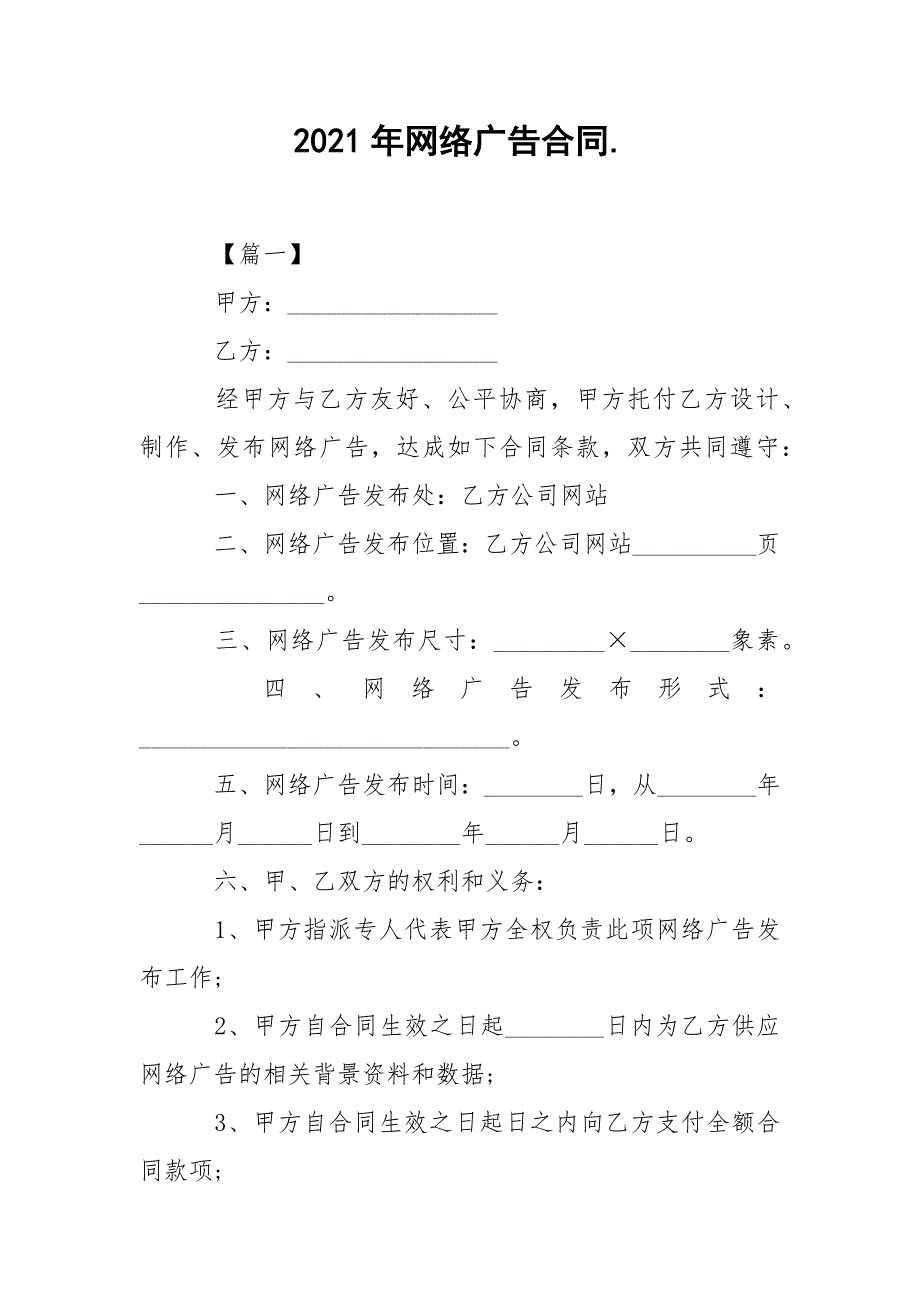 2021年网络广告合同.
【篇一】
甲方：_________________
乙方：_________________
经甲方与乙方友好、公平协商，甲方托付乙方设计、
制作、发布网络广告，达成如下合同条款，双方共同遵守：
一、网络广告发布处：乙方公司网站
二、网络广告发布位置：乙方公司网站__________页
_______________。
三、网络广告发布尺寸：_________×________象素。
四、网络广告发布形式：
______________________________。
五、网络广告发布时间：________日，从________年
______月______日到________年______月______日。
六、甲、乙双方的权利和义务：
1、甲方指派专人代表甲方全权负责此项网络广告发
布工作；
2、甲方自合同生效之日起________日内为乙方供应
网络广告的相关背景资料和数据；
3、甲方自合同生效之日起日之内向乙方支付全额合
同款项；